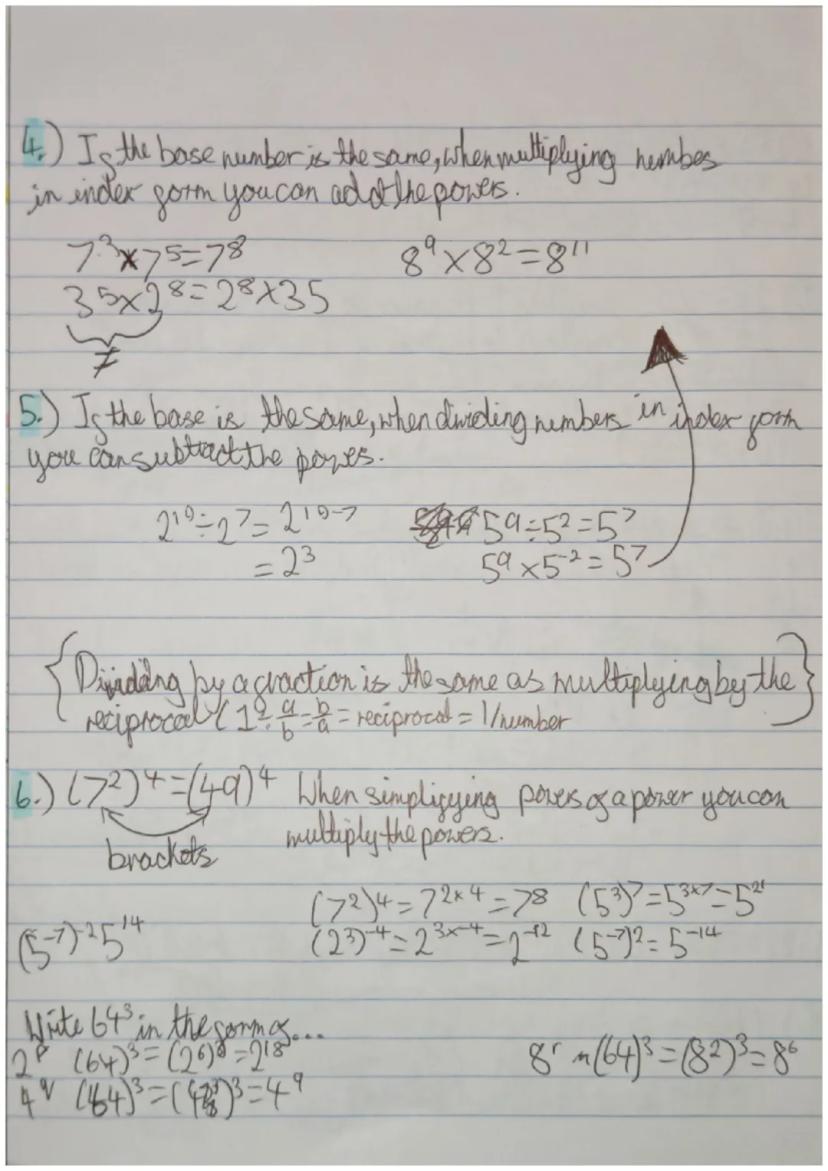 4.) If the base number is the same, when multiplying numbes
in index form you can add the powers.
7³×7⁵=7⁸ 8⁹×8²=8¹¹
3⁵×2⁸=2⁸×35
≠
5.) If the base is the same, when dividing numbers in index form
you can subtract the powes.
2¹⁰÷2⁷=2¹⁰⁻⁷ 5⁹÷5²=5⁷
=2³ 5⁹×5⁻²=5⁷
{Dividing by a fraction is the same as multiplying by the}
reciprocal (1÷a/b=b/a=reciprocal=1/number
6.) (7²)⁴=(49)⁴ When simplifying powers of a power you can
brackets multiply the powers.
(7²)⁴=7²ˣ⁴=78 (5³)⁷=5³ˣ⁷=5²¹
(5⁻⁷)⁻²5¹⁴ (2³)⁻⁴=2³ˣ⁻⁴=2⁻¹² (5⁻⁷)²=5⁻¹⁴
Write 64³ in the form of...
2ᵖ (64)³=(2⁶)³=2¹⁸ 8ʳ (64)³=(8²)³=8⁶
4�q (64)³=(4³)³=4⁹